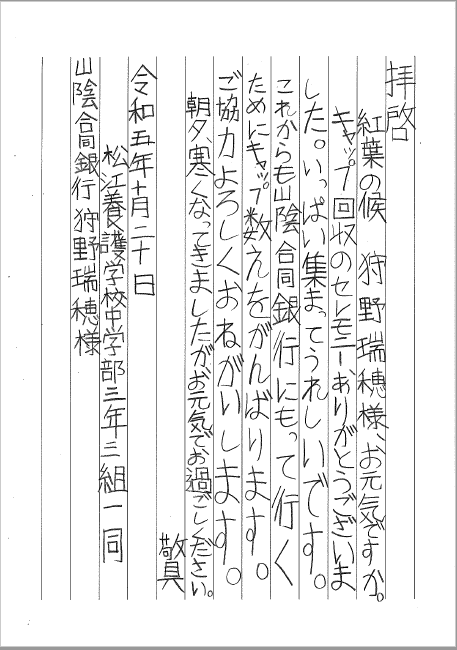 拝啓
紅葉の候　狩野瑞穂様、お元気ですか。
キャップ回収のセレモニー、ありがとうございま
した。いっぱい集まってうれしいです。
これからも山陰合同銀行にもって行く
ためにキャップ数えをがんばります。
ご協力よろしくおねがいします。
朝夕、寒くなってきましたがお元気でお過ごしください。
敬具
令和五年十月二十日
松江養護学校中学部三年三組一同
山陰合同銀行 狩野瑞穂様